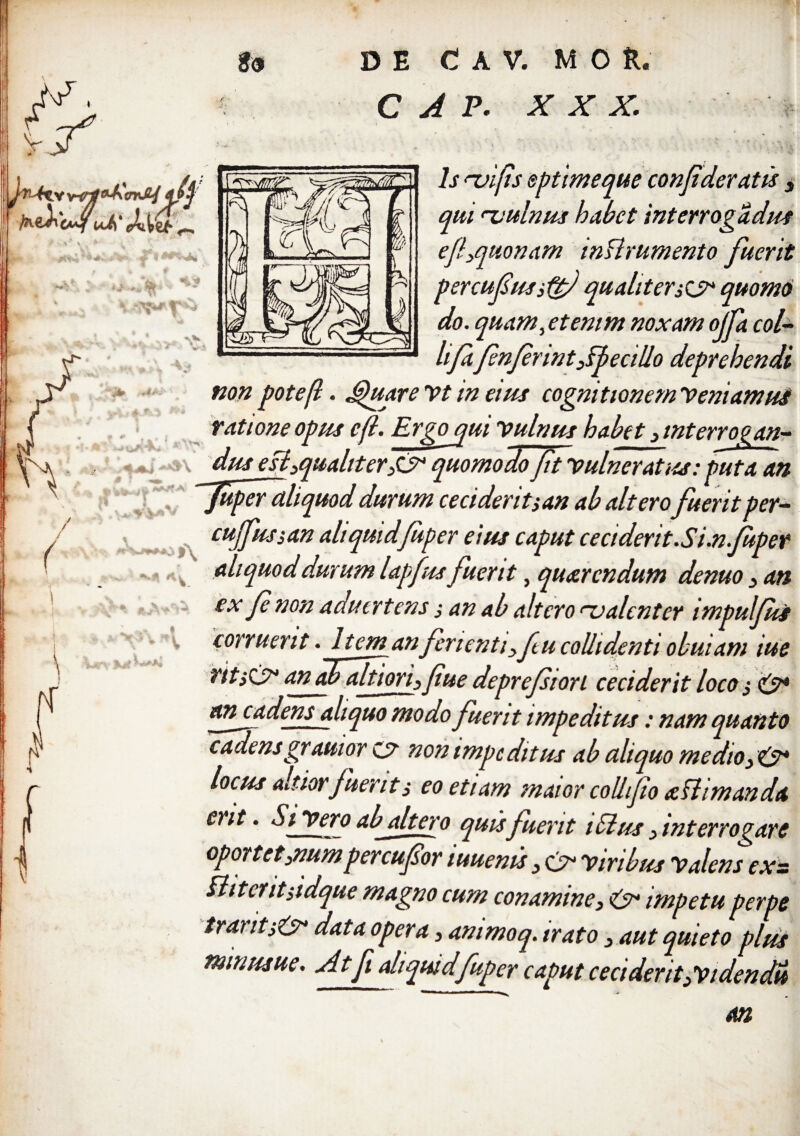 80 DE CAV. MOR.
CAP. XXX.
HIs visis optimeque consideratis,
qui vulnus habet interrogãdus
est, quonam instrumento fuerit
percussus; & qualiter; & quomo
do. quam, etenim noxam ossa col-
lisa senserint, specillo deprehendi
non potest. Quare vt in eius cognitionem veniamus
ratione opus est. Ergo qui vulnus habet, interrogan-
dus est, qualiter, & quomodo sit vulneratus: puta an
super aliquod durum ceciderit; an ab altero fuerit per-
cussus; an aliquid super eius caput ceciderit. Si.n. super
aliquod durum lapsus fuerit, quærendum denuo, an
ex se non aduertens; an ab altero valenter impulsus
corruerit. Item an ferienti, seu collidenti obuiam iue
rit; & an ab altiori, siue depressiori ceciderit loco; &
an cadens aliquo modo fuerit impeditus: nam quanto
cadens grauior & non impeditus ab aliquo medio, &
locus altior fuerit; eo etiam maior collisio æstimanda
erit. Si vero ab altero quis fuerit ictus, interrogare
oportet, num percussor iuuenis, & viribus valens ex=
stiterit; idque magno cum conamine, & impetu perpe
trarit; & data opera, animoq. irato, aut quieto plus
minusue. At si aliquid super caput ceciderit, videndũ
an
Interrogationes
medicus uti debet